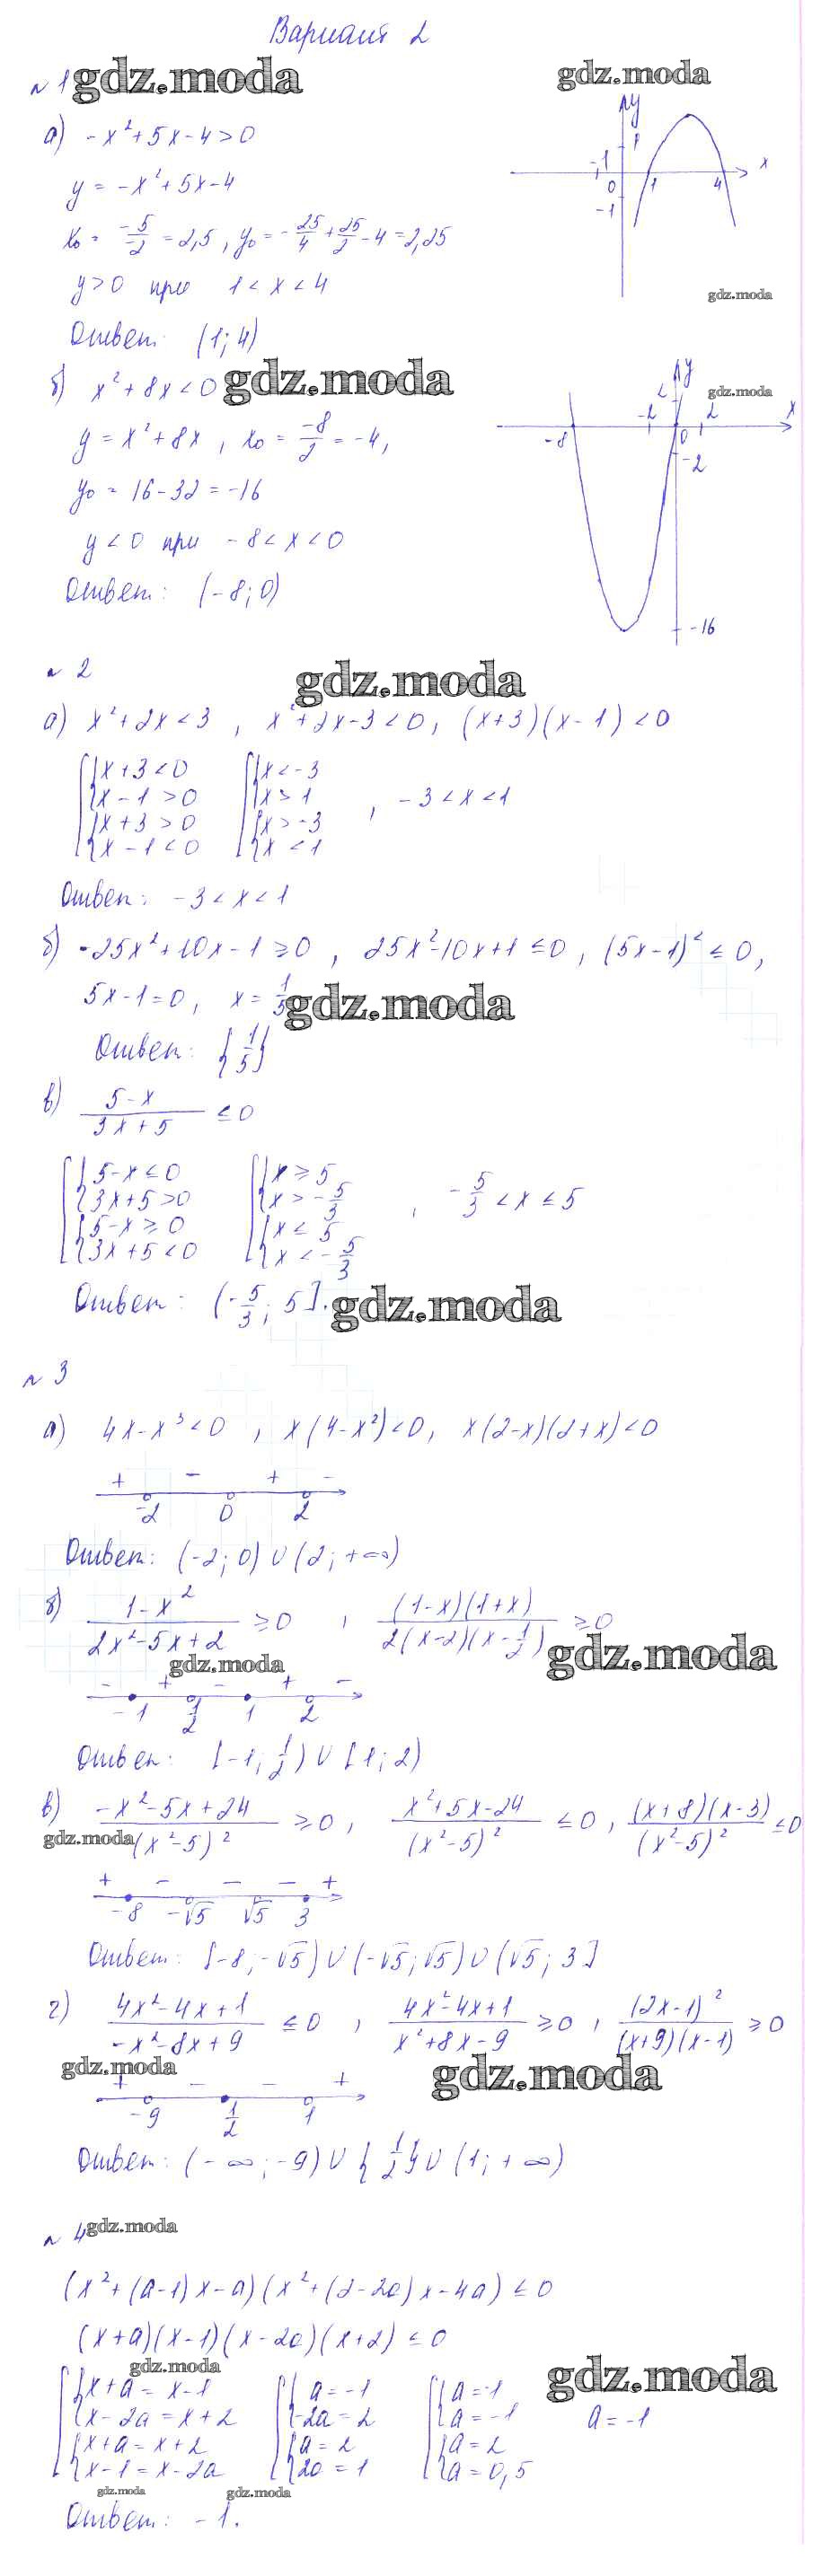 Вариант 2
№ 1 gdz.moda gdz.moda
а) -x²+5x-4>0
y = -x²+5x-4
x₀ = -5/-2 = 2,5, y₀ = -25/4 + 25/2 - 4 = 2,25
y>0 при 1<x<4
Ответ: (1; 4)
y 1 -1 0 1 4 x -1
gdz.moda
б) x²+8x<0 gdz.moda
y = x²+8x, x₀ = -8/2 = -4,
y₀ = 16-32 = -16
y<0 при -8<x<0
Ответ: (-8; 0)
gdz.moda
y 2 -2 2 x -8 0 -2 -16
№ 2 gdz.moda
а) x²+2x<3, x²+2x-3<0, (x+3)(x-1)<0
x+3<0 x<-3
x-1>0 x>1 , -3<x<1
x+3>0 x>-3
x-1<0 x<1
Ответ: -3<x<1
б) -25x²+10x-1≥0, 25x²-10x+1≤0, (5x-1)²≤0,
5x-1=0, x=1/5 gdz.moda
Ответ: {1/5}
в) (5-x)/(3x+5) ≤0
5-x≤0 x≥5
3x+5>0 x>-5/3 , -5/3<x≤5
5-x≥0 x≤5
3x+5<0 x<-5/3
Ответ: (-5/3; 5]. gdz.moda
№ 3
а) 4x-x³<0, x(4-x²)<0, x(2-x)(2+x)<0
+ - + -
-2 0 2
Ответ: (-2; 0)∪(2; +∞)
б) (1-x²)/(2x²-5x+2) ≥0, ((1-x)(1+x))/(2(x-2)(x-1/2)) ≥0
gdz.moda gdz.moda
- + - + -
-1 1/2 1 2
Ответ: [-1; 1/2)∪[1; 2)
в) (-x²-5x+24)/(x²-5)² ≥0, (x²+5x-24)/(x²-5)² ≤0, ((x+8)(x-3))/(x²-5)² ≤0
gdz.moda
+ - - - +
-8 -√5 √5 3
Ответ: [-8; -√5)∪(-√5; √5)∪(√5; 3]
г) (4x²-4x+1)/(-x²-8x+9) ≤0, (4x²-4x+1)/(x²+8x-9) ≥0, (2x-1)²/((x+9)(x-1)) ≥0
gdz.moda gdz.moda
+ - - +
-9 1/2 1
Ответ: (-∞; -9)∪{1/2}∪(1; +∞)
№ 4 gdz.moda
(x²+(a-1)x-a)(x²+(2-2a)x-4a)≤0
(x+a)(x-1)(x-2a)(x+2)≤0
gdz.moda gdz.moda
x+a=x-1 a=-1 a=-1
x-2a=x+2 -2a=2 a=-1 a=-1
x+a=x+2 a=2 a=2
x-1=x-2a 2a=1 a=0,5
gdz.moda gdz.moda
Ответ: -1.